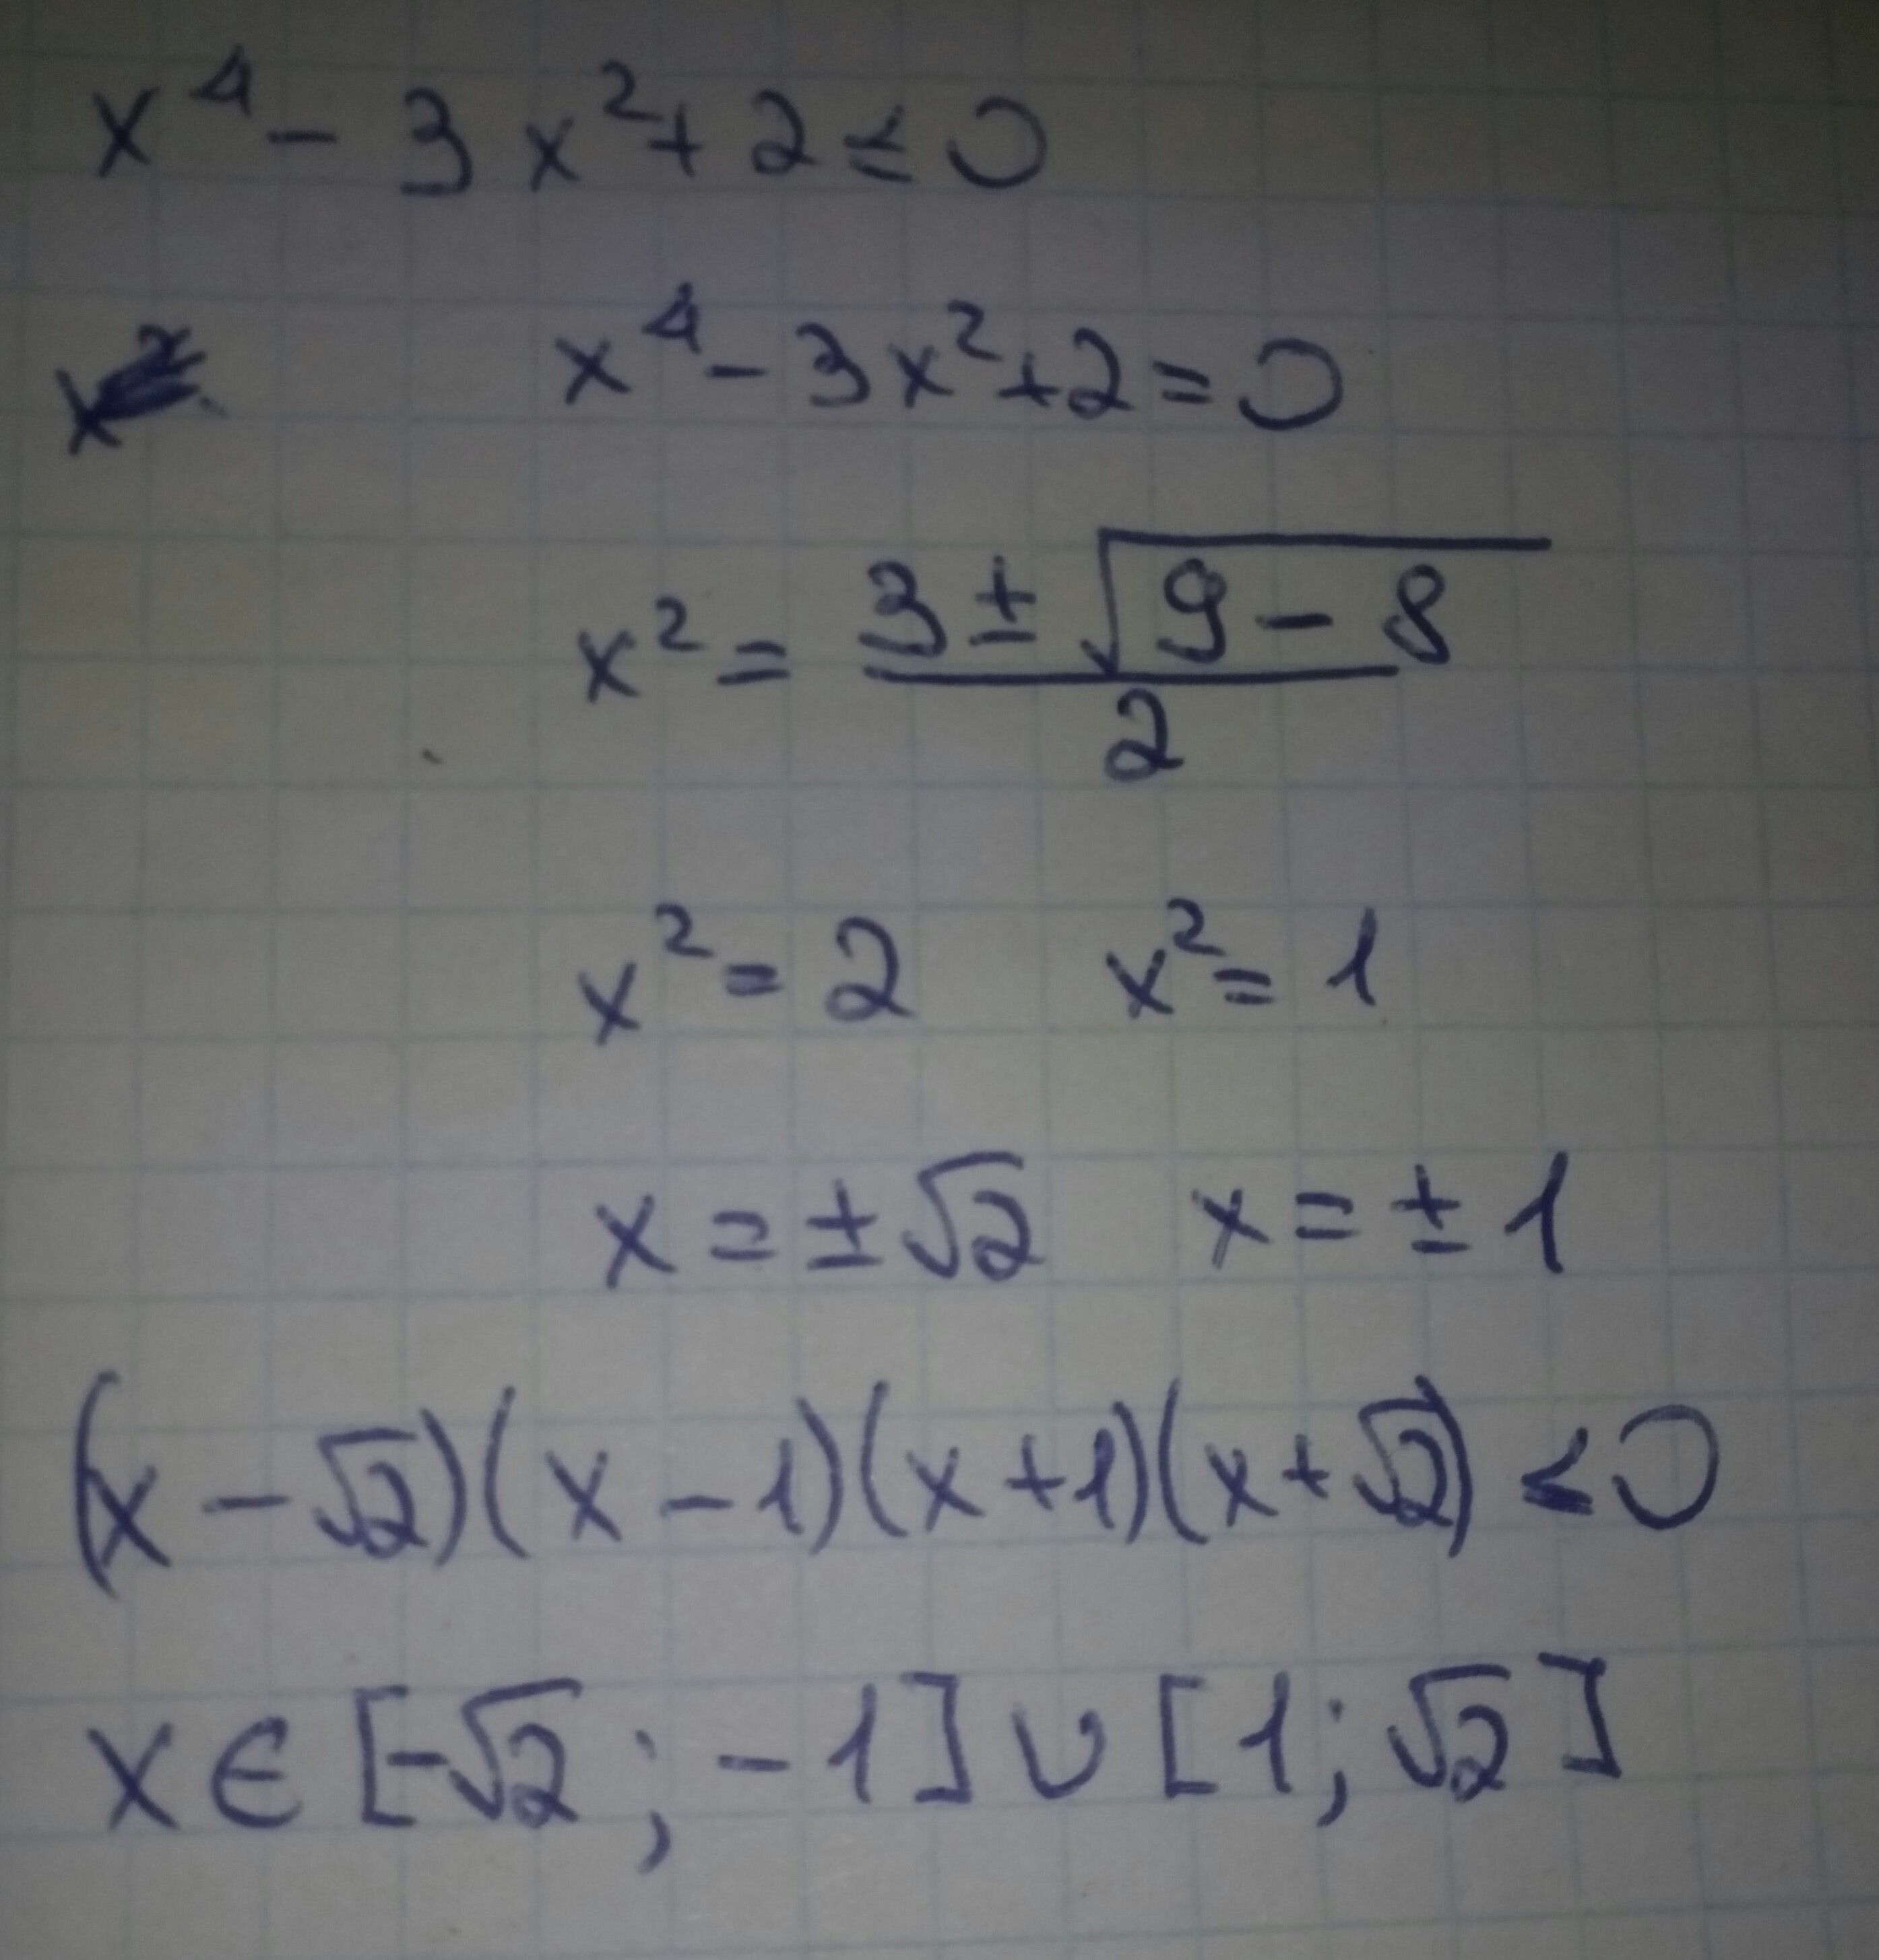 x⁴ - 3x² + 2 ≤ 0
x⁴ - 3x² + 2 = 0
x² = (3 ± √(9 - 8)) / 2
x² = 2 x² = 1
x = ±√2 x = ±1
(x - √2)(x - 1)(x + 1)(x + √2) ≤ 0
x ∈ [-√2; -1] ∪ [1; √2]